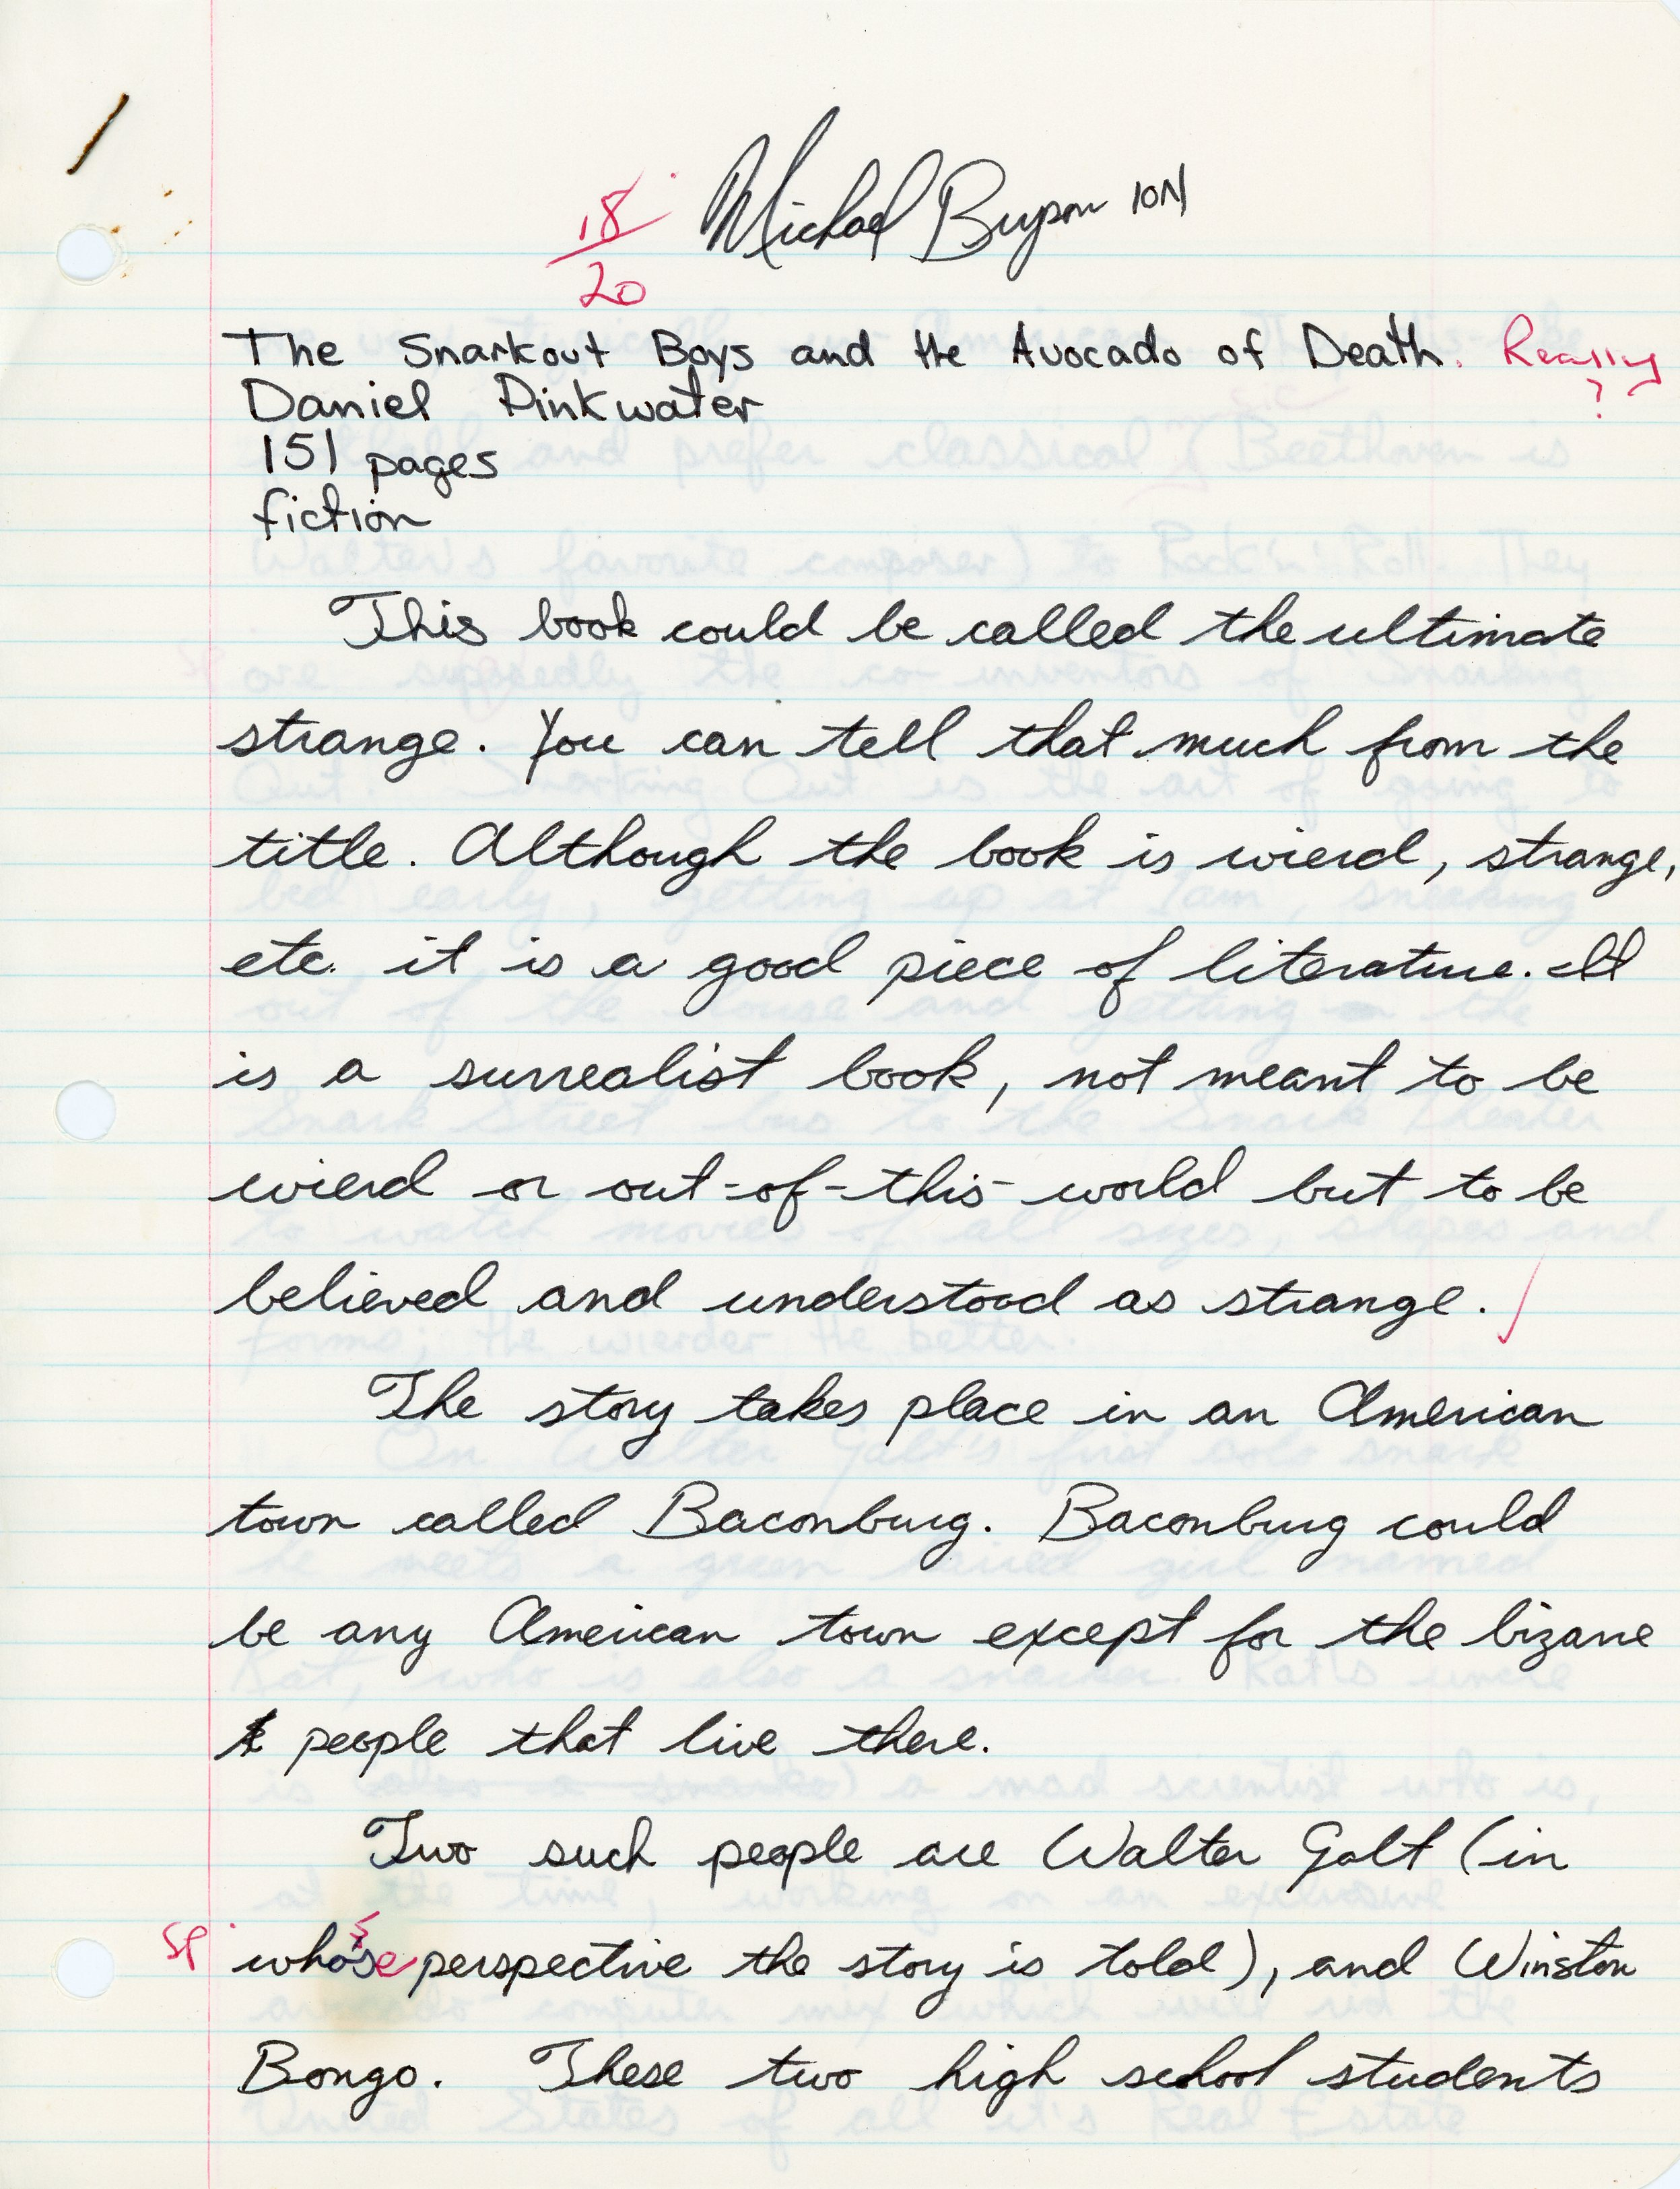 18/20 Michael 10N
The Snarkout Boys and the Avocado of Death. Really
?
Daniel Pinkwater
151 pages
fiction
This book could be called the ultimate
strange. You can tell that much from the
title. Although the book is wierd, strange,
etc. it is a good piece of literature. It
is a surrealist book, not meant to be
wierd or out-of-this-world but to be
believed and understood as strange.
The story takes place in an American
town called Baconburg. Baconburg could
be any American town except for the bizarre
people that live there.
Two such people are Walter Galt (in
sp whose perspective the story is told), and Winston
Bongo. These two high school students